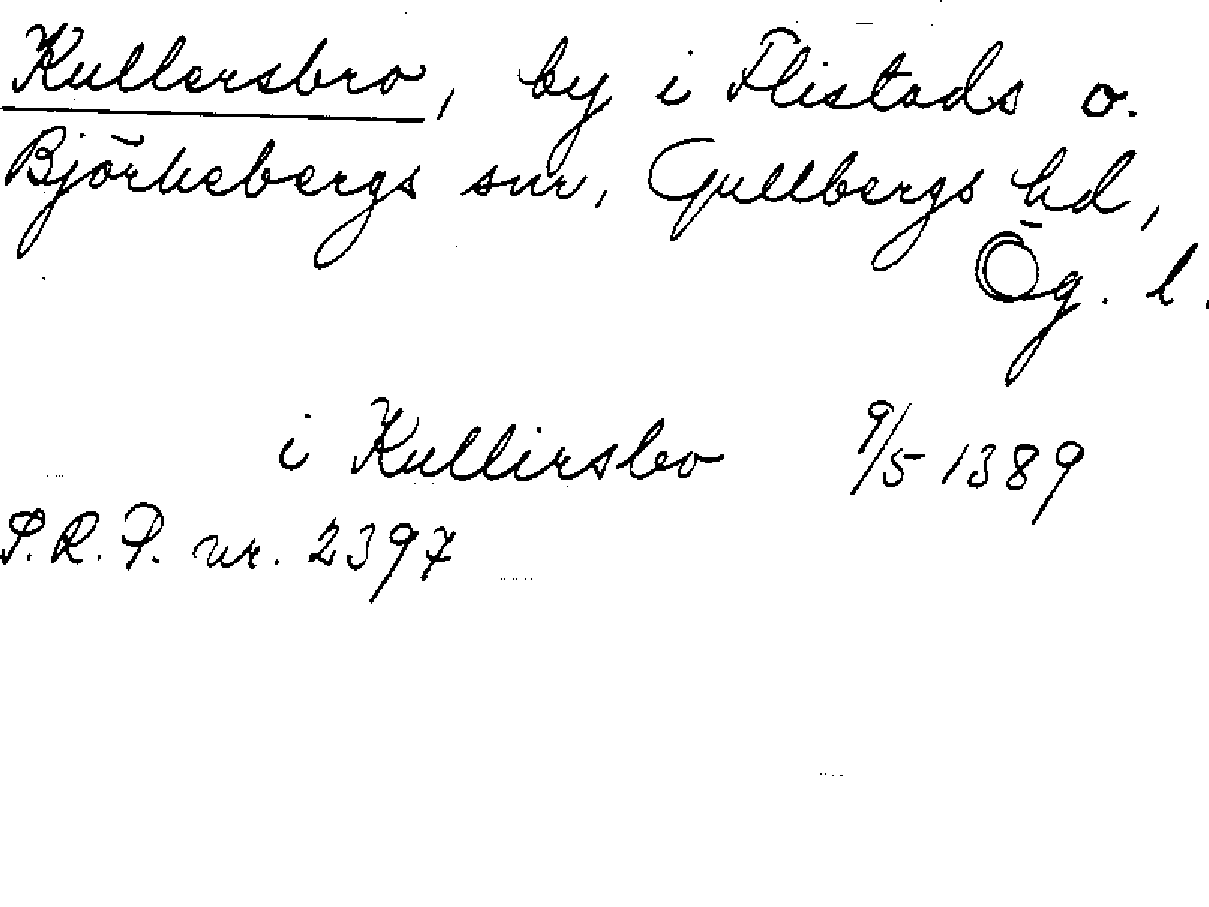 Kullersbro, by i Flistads o.
Björkebergs snr, Gullbergs hd,
Ög. l.
i Kullirsbo 9/5 1389
P.R.P. nr. 2397